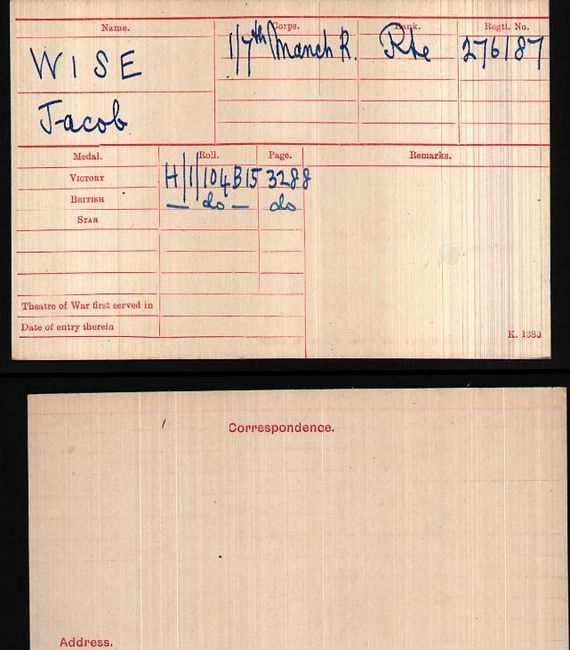 Name. Corps. Rank. Regtl. No.
WISE 1/7th Manch R. Pte 276187
Jacob
Medal. Roll. Page. Remarks.
VICTORY H/1/104B15 3288
BRITISH — do — do
STAR
Theatre of War first served in
Date of entry therein
K. 1380
Correspondence.
Address.